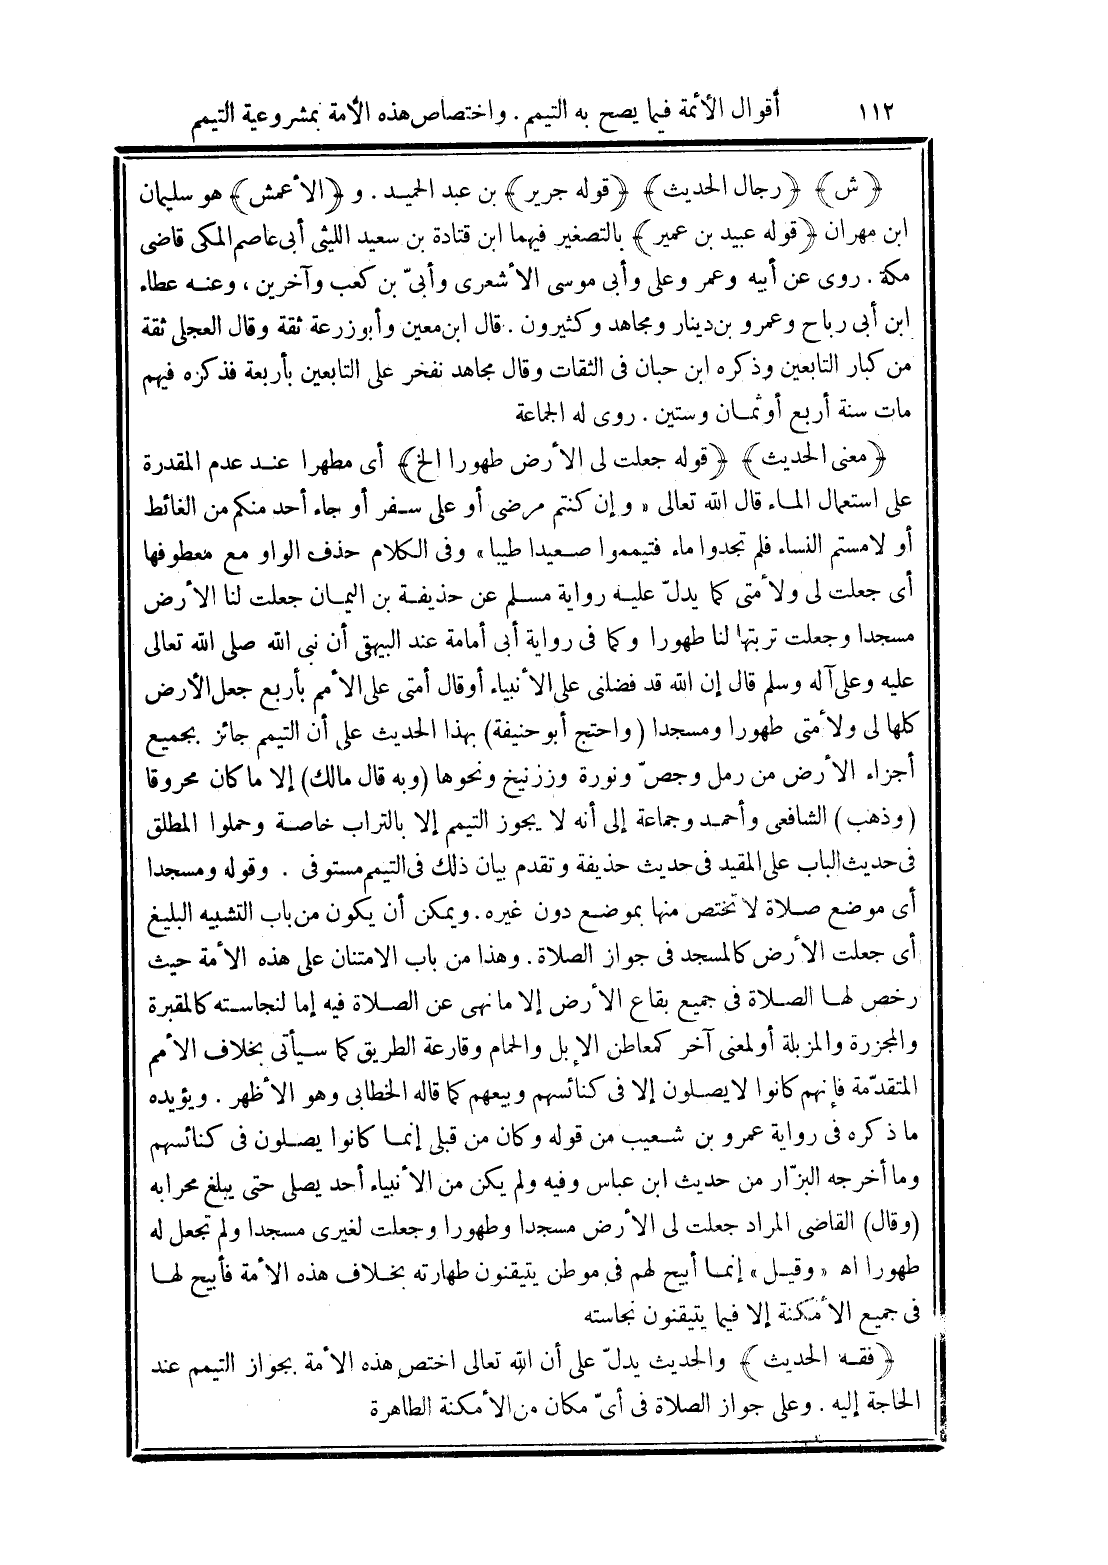 ١١٢ أقوال الأئمة فيما يصح به التيمم . واختصاص هذه الأمة بمشروعية التيمم
﴿ش﴾ ﴿رجال الحديث﴾ ﴿قوله جرير﴾ بن عبد الحميد . و ﴿الأعمش﴾ هو سليمان
ابن مهران ﴿قوله عبيد بن عمير﴾ بالتصغير فيهما ابن قتادة بن سعيد الليثى أبى عاصم المكى قاضى
مكة . روى عن أبيه وعمر وعلى وأبى موسى الأشعرى وأبىّ بن كعب وآخرين ، وعنه عطاء
ابن أبى رباح وعمرو بن دينار ومجاهد وكثيرون . قال ابن معين وأبوزرعة ثقة وقال العجلى ثقة
من كبار التابعين وذكره ابن حبان فى الثقات وقال مجاهد نفخر على التابعين بأربعة فذكره فيهم
مات سنة أربع أوثمان وستين . روى له الجماعة
﴿معنى الحديث﴾ ﴿قوله جعلت لى الأرض طهورا الخ﴾ أى مطهرا عند عدم المقدرة
على استعمال الماء قال الله تعالى « وإن كنتم مرضى أو على سفر أو جاء أحد منكم من الغائط
أو لامستم النساء فلم تجدوا ماء فتيمموا صعيدا طيبا» وفى الكلام حذف الواو مع معطوفها
أى جعلت لى ولأمتى كما يدلّ عليه رواية مسلم عن حذيفة بن اليمان جعلت لنا الأرض
مسجدا وجعلت تربتها لنا طهورا وكما فى رواية أبى أمامة عند البيهقى أن نبى الله صلى الله تعالى
عليه وعلى آله وسلم قال إن الله قد فضلنى على الأنبياء أوقال أمتى على الأمم بأربع جعل الأرض
كلها لى ولأمتى طهورا ومسجدا (واحتج أبوحنيفة) بهذا الحديث على أن التيمم جائز بجميع
أجزاء الأرض من رمل وجصّ ونورة وززنيخ ونحوها (وبه قال مالك) إلا ما كان محروقا
(وذهب) الشافعى وأحمد وجماعة إلى أنه لا يجوز التيمم إلا بالتراب خاصة وحملوا المطلق
فى حديث الباب على المقيد فى حديث حذيفة وتقدم بيان ذلك فى التيمم مستوفى . وقوله ومسجدا
أى موضع صلاة لا تختص منها بموضع دون غيره . ويمكن أن يكون من باب التشبيه البليغ
أى جعلت الأرض كالمسجد فى جواز الصلاة . وهذا من باب الامتنان على هذه الأمة حيث
رخص لها الصلاة فى جميع بقاع الأرض إلا ما نهى عن الصلاة فيه إما لنجاسته كالمقبرة
والمجزرة والمزبلة أولمعنى آخر كمعاطن الإبل والحمام وقارعة الطريق كما سيأتى بخلاف الأمم
المتقدّمة فإنهم كانوا لايصلون إلا فى كنائسهم وبيعهم كما قاله الخطابى وهو الأظهر . ويؤيده
ما ذكره فى رواية عمرو بن شعيب من قوله وكان من قبلى إنما كانوا يصلون فى كنائسهم
وما أخرجه البزّار من حديث ابن عباس وفيه ولم يكن من الأنبياء أحد يصلى حتى يبلغ محرابه
(وقال) القاضى المراد جعلت لى الأرض مسجدا وطهورا وجعلت لغيرى مسجدا ولم تجعل له
طهورا اه « وقيل » إنما أبيح لهم فى موطن يتيقنون طهارته بخلاف هذه الأمة فأبيح لها
فى جميع الأمكنة إلا فيما يتيقنون نجاسته
﴿فقه الحديث﴾ والحديث يدلّ على أن الله تعالى اختص هذه الأمة بجواز التيمم عند
الحاجة إليه . وعلى جواز الصلاة فى أىّ مكان من الأمكنة الطاهرة